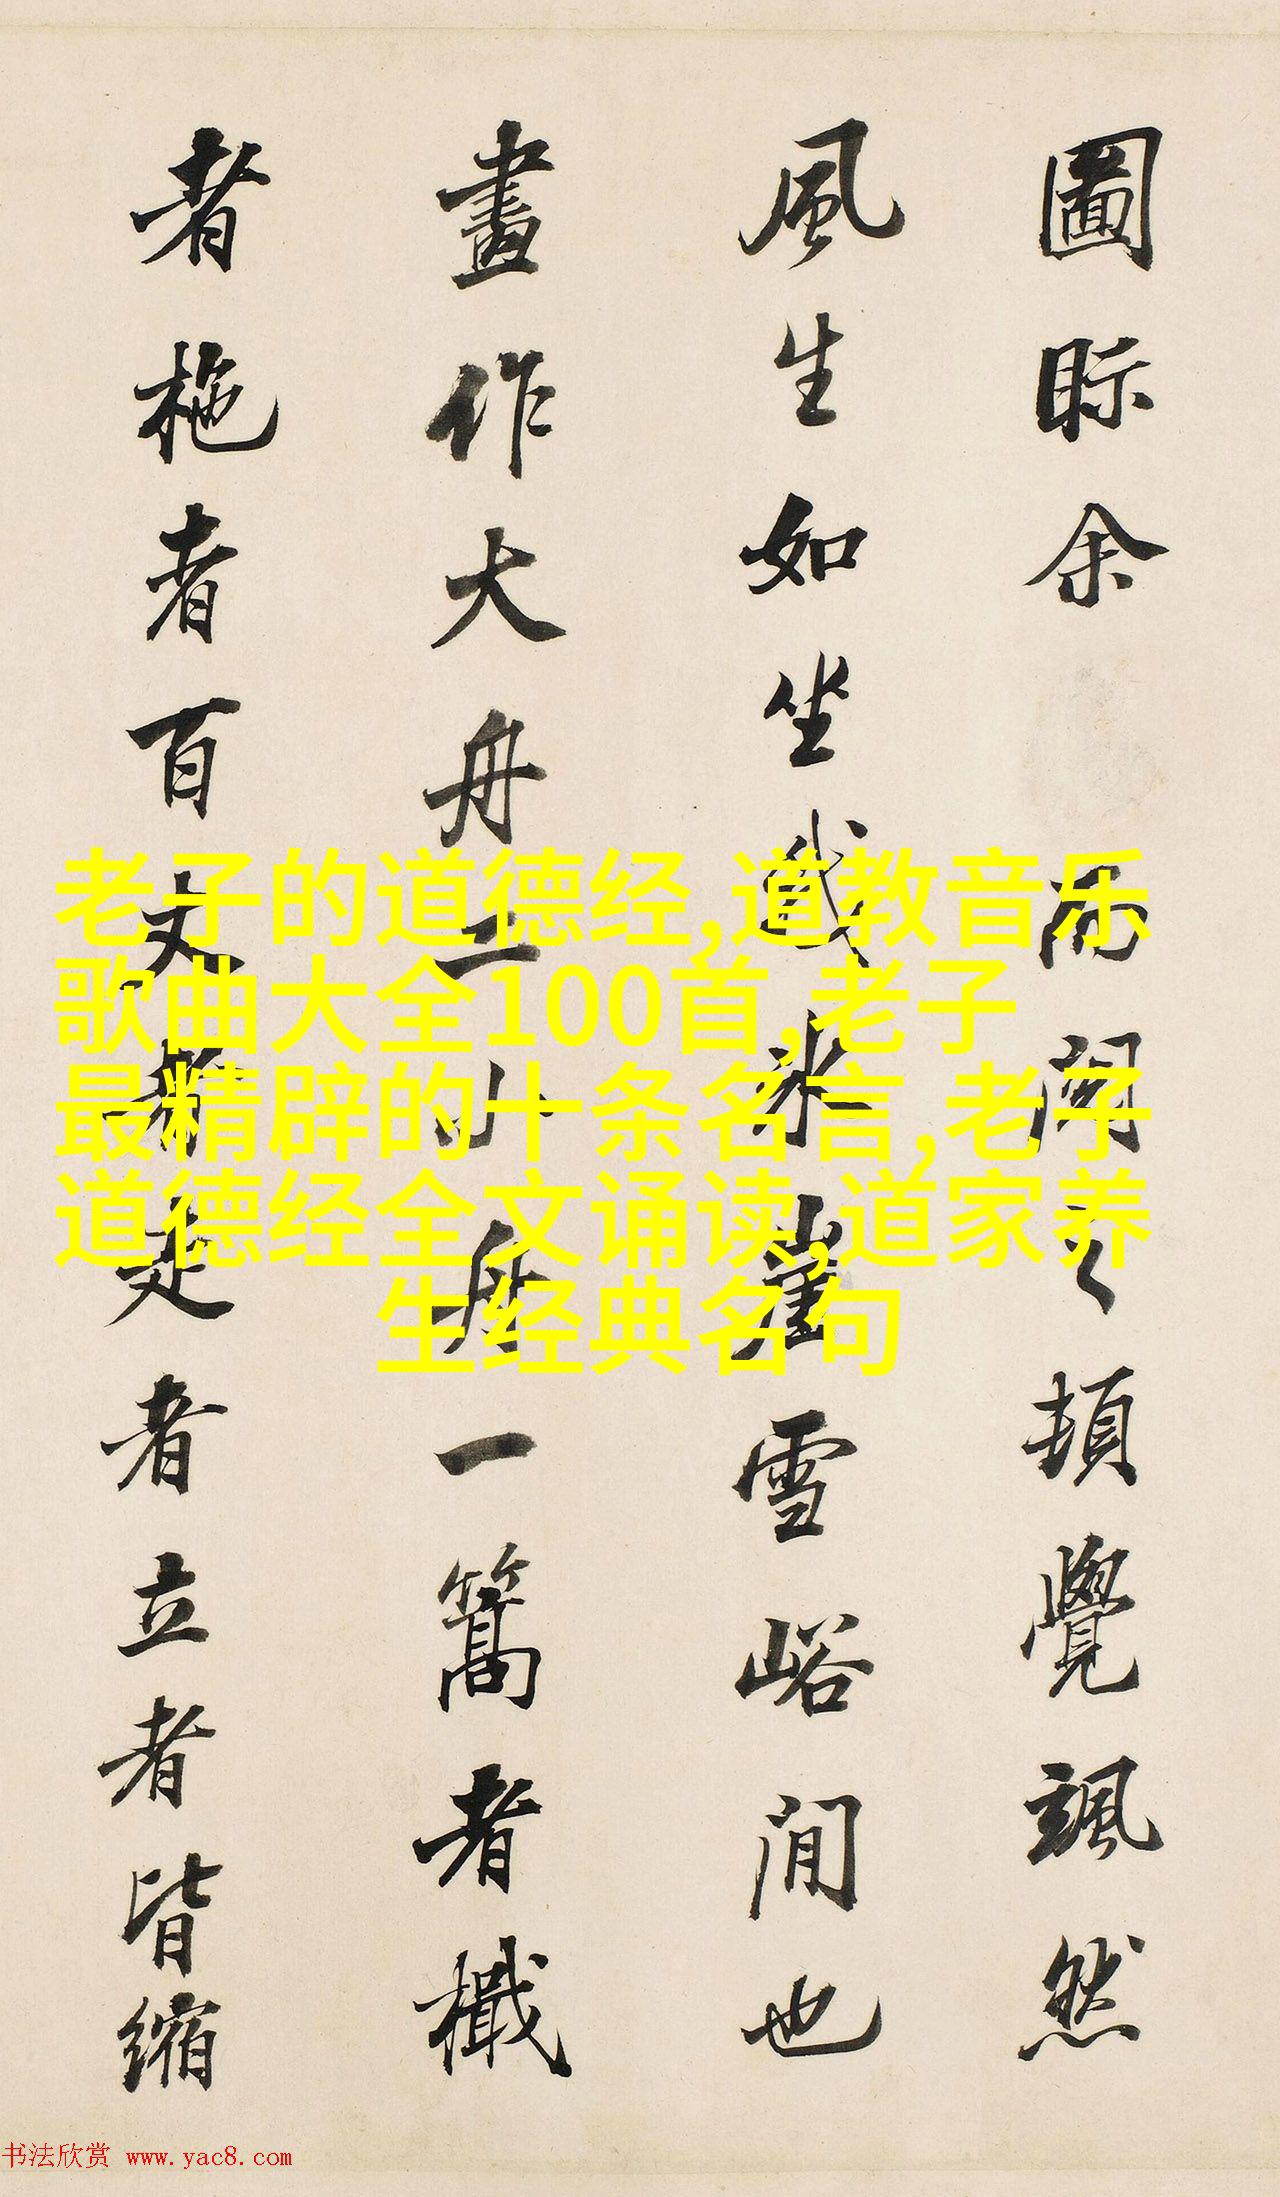 圖眎余而閱之頓覺颯然
風生如坐我冰崖雪峪間也
畫作大舟二小舟一篙者檝
者柂者百丈者走者立者皆縮
老子的道德经,道教音乐
歌曲大全100首,老子
最精辟的十条名言,老子
道德经全文诵读,道家养
生经典名句
书法欣赏 www.yac8.com